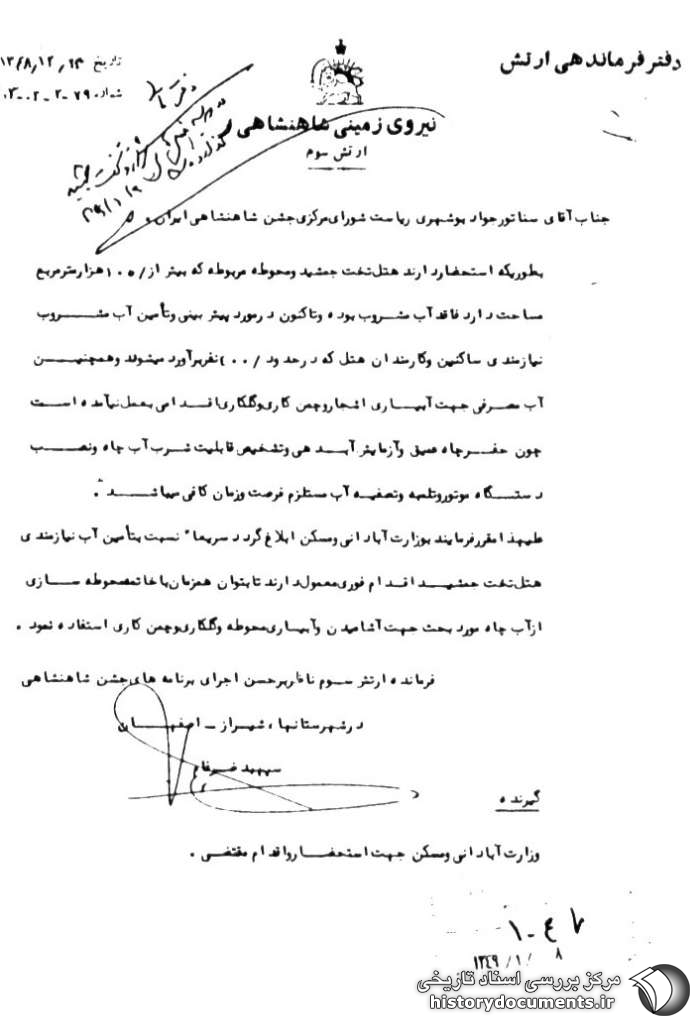 دفتر فرماندهی ارتش
نیروی زمینی شاهنشاهی
ارتش سوم
تاریخ
شماره
جناب آقای سناتور جواد بوشهری ریاست شورای مرکزی جشن شاهنشاهی ایران
بطوریکه استحضار دارند هتل تخت جمشید ومحوطه مربوطه که بیش از /۱۰۵ هزارمترمربع
مساحت دارد فاقد آب مشروب بوده وتاکنون درمورد پیش بینی وتأمین آب مشروب
نیازمندی ساکنین وکارمندان هتل که درحدود نفربرآورد میشوند وهمچنین
آب مصرفی جهت آبیاری اشجار وچمن کاری وگلکاری اقدامی بعمل نیامده است
چون حفر چاه عمیق وآزمایش آبدهی وتشخیص قابلیت شرب آب چاه ونصب
دستگاه موتور وتلمبه وتصفیه آب مستلزم فرصت وزمان کافی میباشد .
علیهذا مقرر فرمایند بوزارت آبادانی ومسکن ابلاغ گردد سریعا" نسبت بتأمین آب نیازمندی
هتل تخت جمشید اقدام فوری معمول دارند تا بتوان همزمان با خاتمه محوطه سازی
ازآب چاه مورد بحث جهت آشامیدن وآبیاری محوطه وگلکاری وچمن کاری استفاده نمود .
فرمانده ارتش سوم ناظر برحسن اجرای برنامه های جشن شاهنشاهی
درشهرستانها ، شیراز ـ اصفهان
سپهبد ضرغام
گیرنده
وزارت آبادانی ومسکن جهت استحضار واقدام مقتضی .
۱۳۴۹/۱/۸
مرکز بررسی اسناد تاریخی
historydocuments.ir